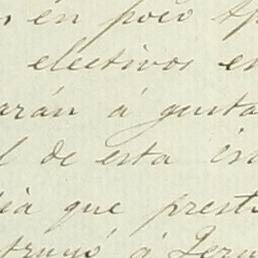 en poco
electivos en
arán á gusta
l de esta
que prest
truyó á